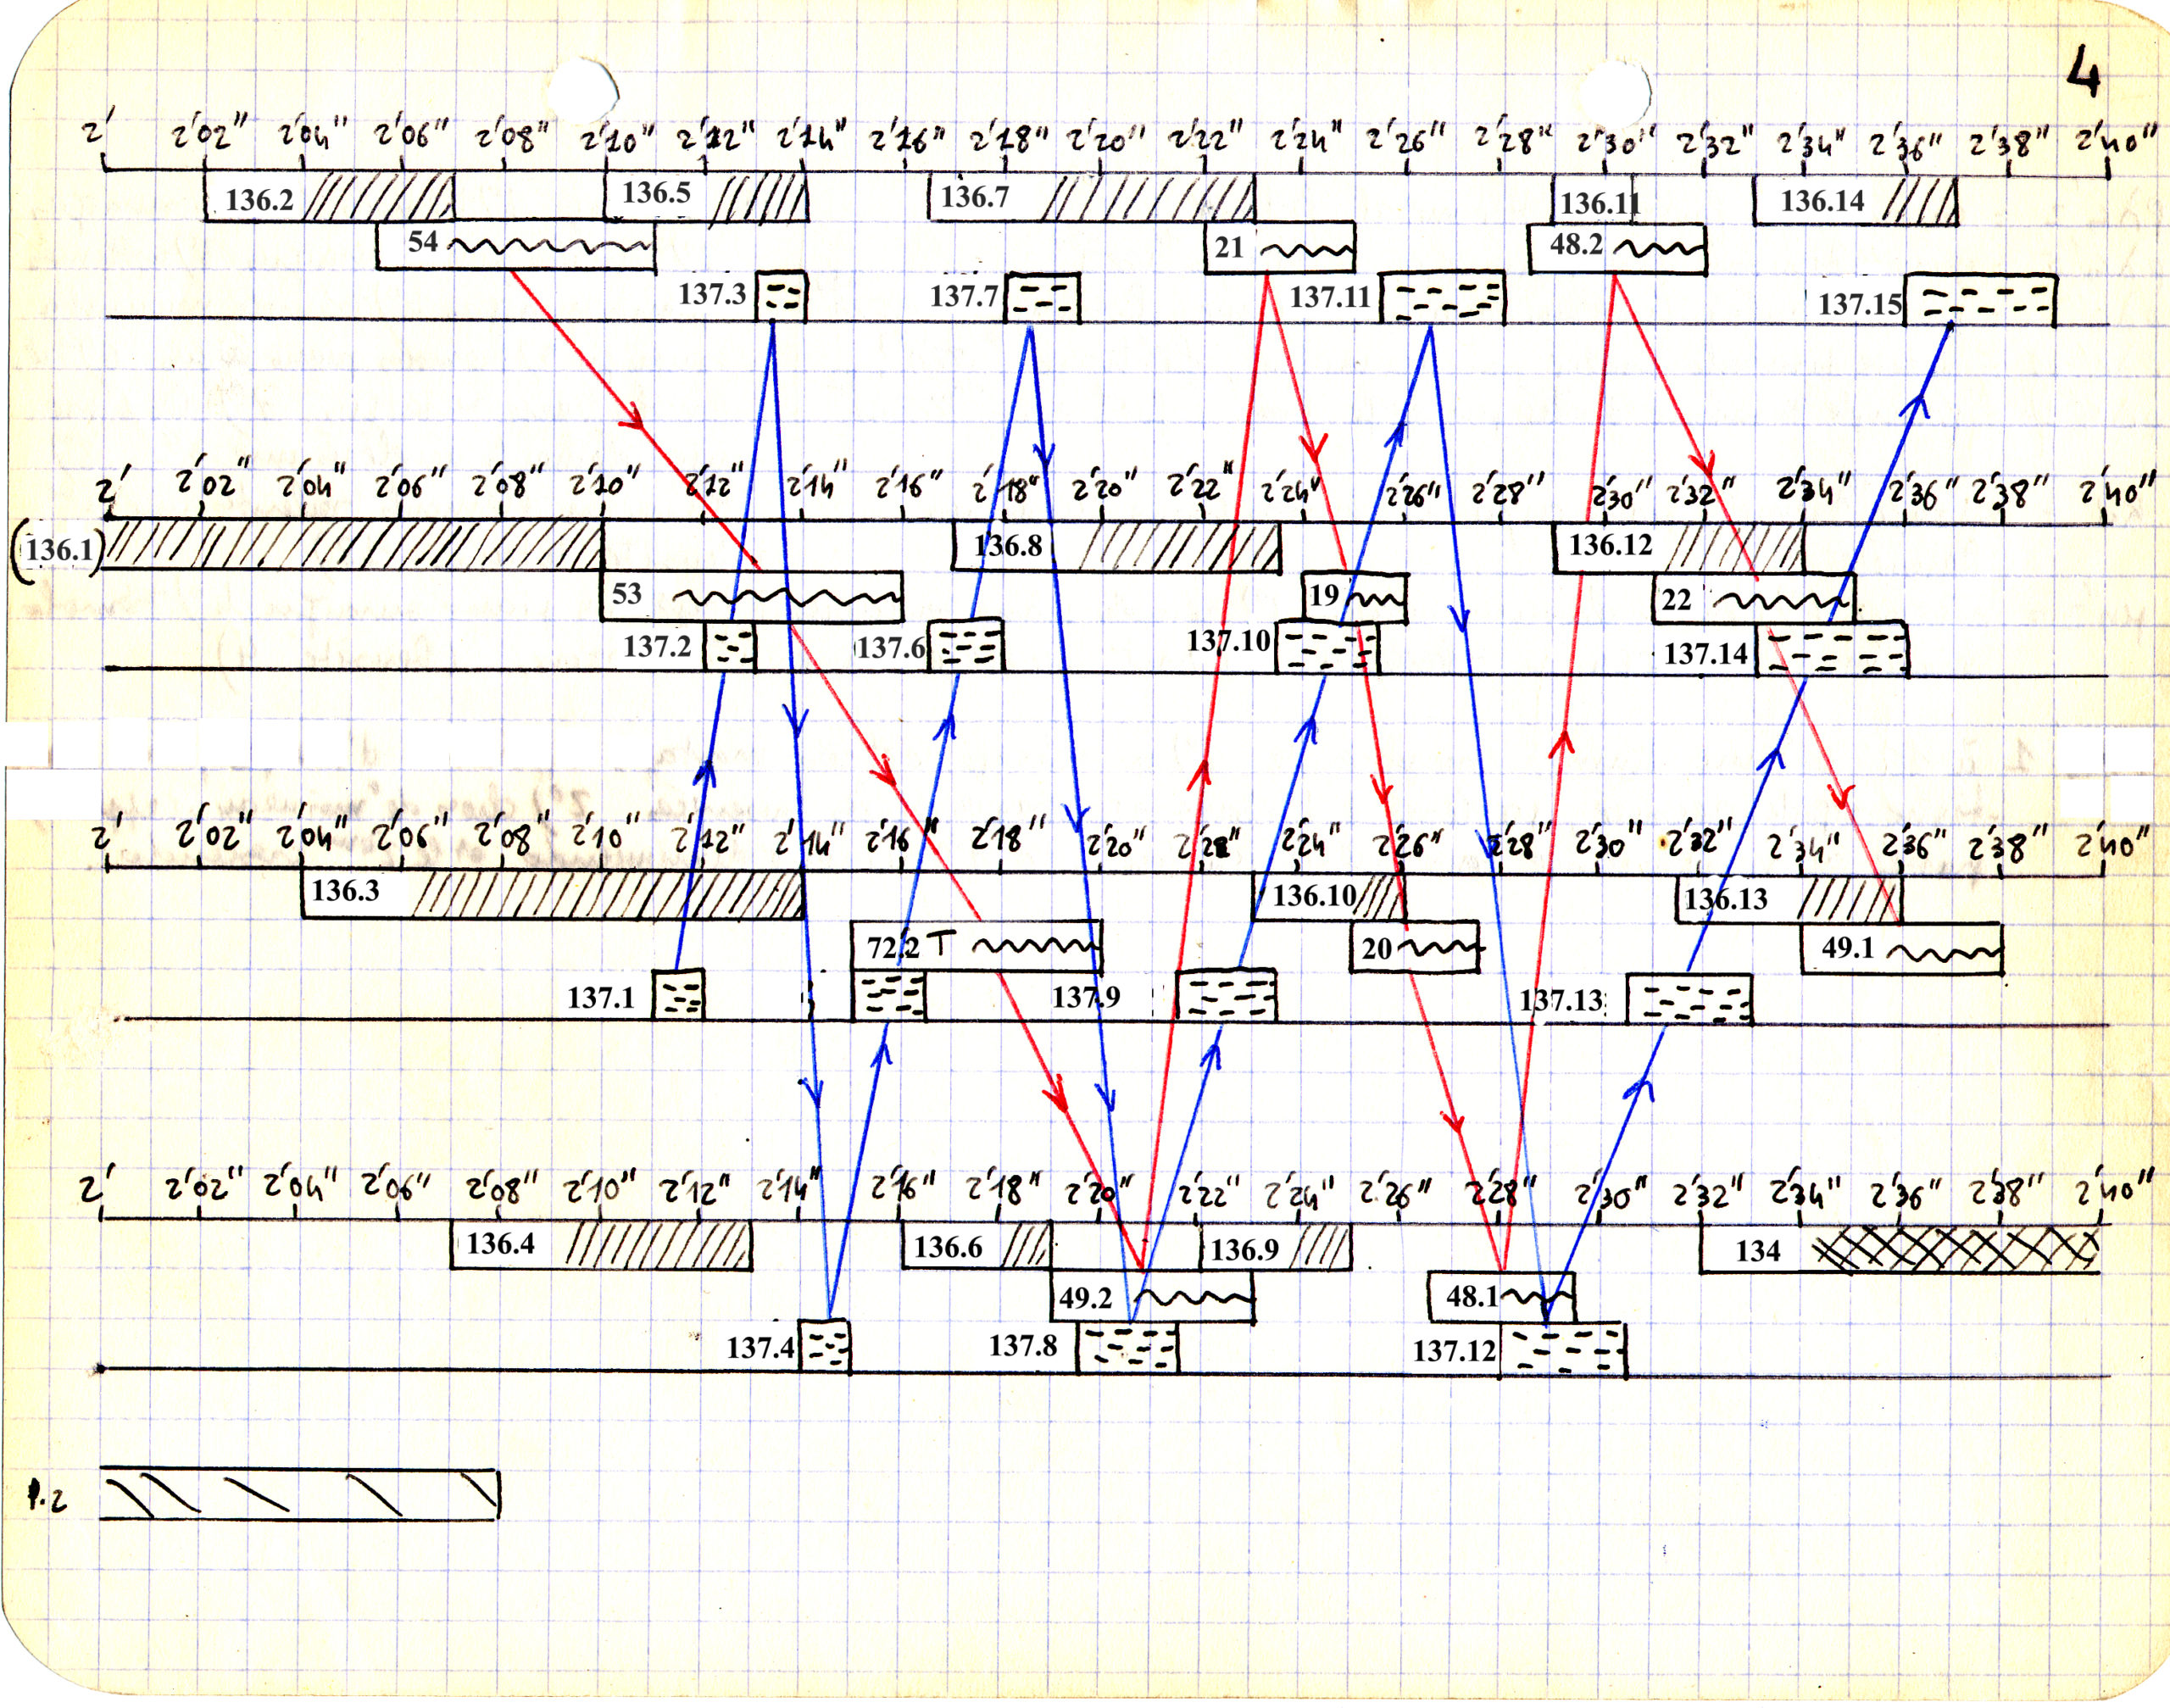 4
2' 2'02" 2'04" 2'06" 2'08" 2'10" 2'12" 2'14" 2'16" 2'18" 2'20" 2'22" 2'24" 2'26" 2'28" 2'30" 2'32" 2'34" 2'36" 2'38" 2'40"
136.2 136.5 136.7 136.11 136.14
54 21 48.2
137.3 137.7 137.11 137.15
2' 2'02" 2'04" 2'06" 2'08" 2'10" 2'12" 2'14" 2'16" 2'18" 2'20" 2'22" 2'24" 2'26" 2'28" 2'30" 2'32" 2'34" 2'36" 2'38" 2'40"
(136.1) 136.8 136.12
53 19 22
137.2 137.6 137.10 137.14
2' 2'02" 2'04" 2'06" 2'08" 2'10" 2'12" 2'14" 2'16" 2'18" 2'20" 2'22" 2'24" 2'26" 2'28" 2'30" 2'32" 2'34" 2'36" 2'38" 2'40"
136.3 136.10 136.13
72.2 T 20 49.1
137.1 137.9 137.13
2' 2'02" 2'04" 2'06" 2'08" 2'10" 2'12" 2'14" 2'16" 2'18" 2'20" 2'22" 2'24" 2'26" 2'28" 2'30" 2'32" 2'34" 2'36" 2'38" 2'40"
136.4 136.6 136.9 134
49.2 48.1
137.4 137.8 137.12
1.2